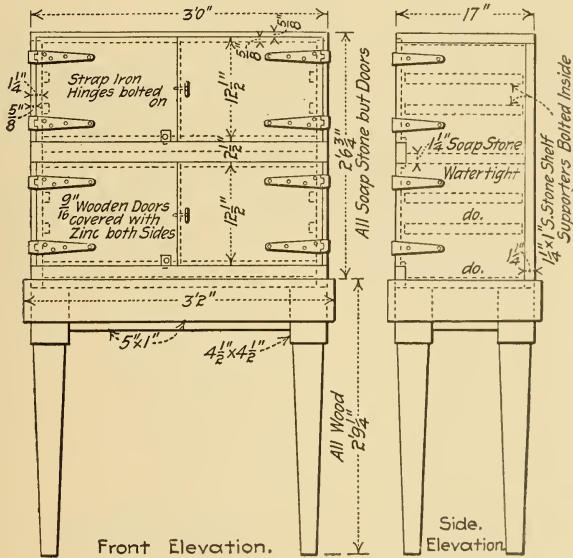 3'0"
5/8
5/8
Strap Iron
Hinges bolted
on
1 1/4"
5/8"
12 1/2"
2 1/2"
12 1/2"
9/16" Wooden Doors
covered with
Zinc both Sides
2'6 3/4"
All Soap Stone but Doors
3'2"
5"x1"
4 1/2"x4 1/2"
All Wood
2'9 1/4"
Front Elevation.
17"
1 1/4" Soap Stone
Watertight
do.
do.
1 1/4"
1 1/4"x1" S.Stone Shelf
Supporters Bolted Inside
Side.
Elevation